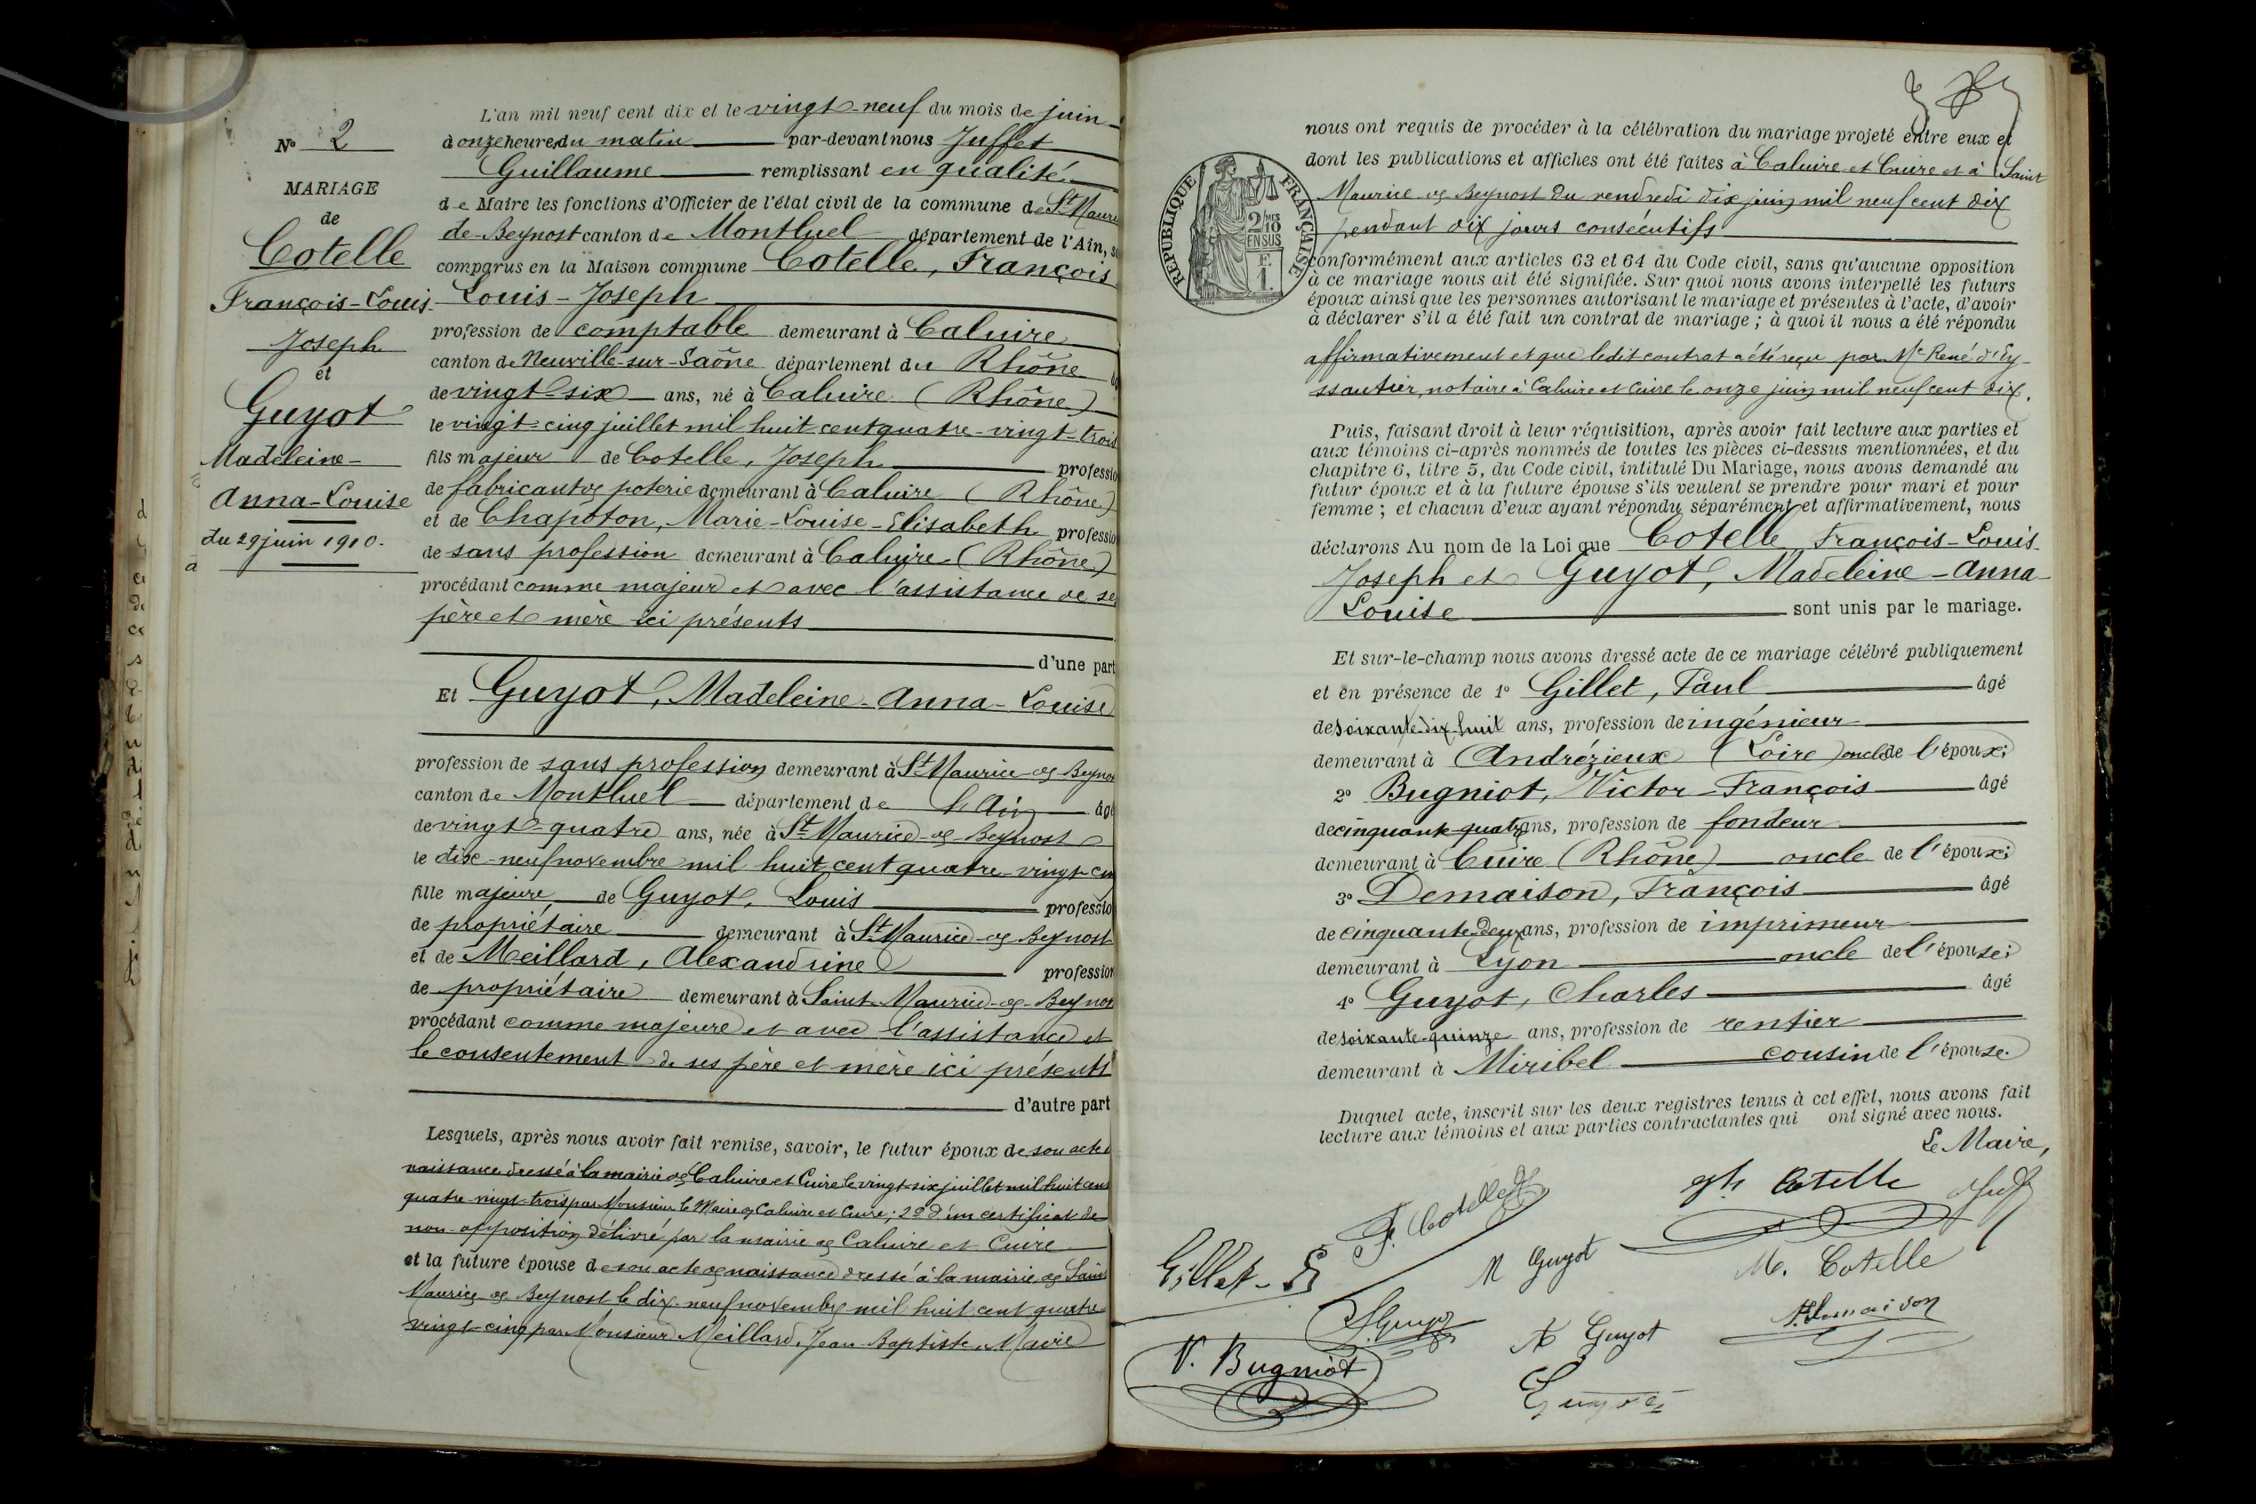 N° 2
MARIAGE
de
Cotelle
François-Louis-
Joseph
et
Guyot
Madeleine-
Anna-Louise
du 29 juin 1910.
L'an mil neuf cent dix et le vingt-neuf du mois de juin
à onze heures du matin par-devant nous Juffet
Guillaume remplissant en qualité
de Maire les fonctions d'Officier de l'état civil de la commune de St Mauri
de-Beynost canton de Montluel département de l'Ain, so
comparus en la Maison commune Cotelle, François
Louis-Joseph
profession de comptable demeurant à Caluire
canton de Neuville-sur-Saône département du Rhône
de vingt-six ans, né à Caluire (Rhône)
le vingt-cinq juillet mil huit cent quatre-vingt-trois
fils majeur de Cotelle, Joseph professio
de fabricant de poterie demeurant à Caluire (Rhône)
et de Chapoton, Marie-Louise-Elisabeth professio
de sans profession demeurant à Caluire (Rhône)
procédant comme majeur et avec l'assistance de se
père et mère ici présents
d'une part
Et Guyot, Madeleine-Anna-Louise
profession de sans profession demeurant à St Maurice de Beyno
canton de Montluel département de l'Ain âgé
de vingt-quatre ans, née à St Maurice-de-Beynost
le dix-neuf novembre mil huit cent quatre-vingt-cin
fille majeure de Guyot, Louis professio
de propriétaire demeurant à St Maurice-de-Beynost
et de Meillard, Alexandrine profession
de propriétaire demeurant à Saint-Maurice-de-Beynos
procédant comme majeure et avec l'assistance et
le consentement de ses père et mère ici présents
d'autre part
Lesquels, après nous avoir fait remise, savoir, le futur époux de son acte d
naissance dressé à la mairie de Caluire et Cuire le vingt-six juillet mil huit cent
quatre vingt-trois par Monsieur le Maire de Caluire et Cuire; 2° d'un certificat de
non-opposition délivré par la mairie de Caluire et Cuire
et la future épouse de son acte de naissance dressé à la mairie de Saint
Maurice de Beynost le dix-neuf novembre mil huit cent quatre
vingt-cinq par Monsieur Meillard, Jean-Baptiste, Maire
nous ont requis de procéder à la célébration du mariage projeté entre eux et
dont les publications et affiches ont été faites à Caluire et Cuire et à Saint
Maurice de Beynost du vendredi dix juin mil neuf cent dix
pendant dix jours consécutifs
RÉPUBLIQUE FRANÇAISE
2/10
EN SUS
F.
1.
conformément aux articles 63 et 64 du Code civil, sans qu'aucune opposition
à ce mariage nous ait été signifiée. Sur quoi nous avons interpellé les futurs
époux ainsi que les personnes autorisant le mariage et présentes à l'acte, d'avoir
à déclarer s'il a été fait un contrat de mariage ; à quoi il nous a été répondu
affirmativement et que ledit contrat a été reçu par Me René d'Ey-
ssautier, notaire à Caluire et Cuire le onze juin mil neuf cent dix.
Puis, faisant droit à leur réquisition, après avoir fait lecture aux parties et
aux témoins ci-après nommés de toutes les pièces ci-dessus mentionnées, et du
chapitre 6, titre 5, du Code civil, intitulé Du Mariage, nous avons demandé au
futur époux et à la future épouse s'ils veulent se prendre pour mari et pour
femme ; et chacun d'eux ayant répondu séparément et affirmativement, nous
déclarons Au nom de la Loi que Cotelle François-Louis-
Joseph et Guyot, Madeleine-Anna-
Louise sont unis par le mariage.
Et sur-le-champ nous avons dressé acte de ce mariage célébré publiquement
et en présence de 1° Gillet, Paul âgé
de soixante-dix-huit ans, profession de ingénieur
demeurant à Andrézieux (Loire) oncle de l'époux;
2° Bugniot, Victor-François âgé
de cinquante-quatre ans, profession de fondeur
demeurant à Cuire (Rhône) oncle de l'époux;
3° Demaison, François âgé
de cinquante-deux ans, profession de imprimeur
demeurant à Lyon oncle de l'épouse;
4° Guyot, Charles âgé
de soixante-quinze ans, profession de rentier
demeurant à Miribel cousin de l'épouse.
Duquel acte, inscrit sur les deux registres tenus à cet effet, nous avons fait
lecture aux témoins et aux parties contractantes qui ont signé avec nous.
Le Maire,
Cotelle
F. Cotelle
M Guyot
M. Cotelle
Gillet
Guyot
A Guyot
F. Demaison
V. Bugniot
Guyot